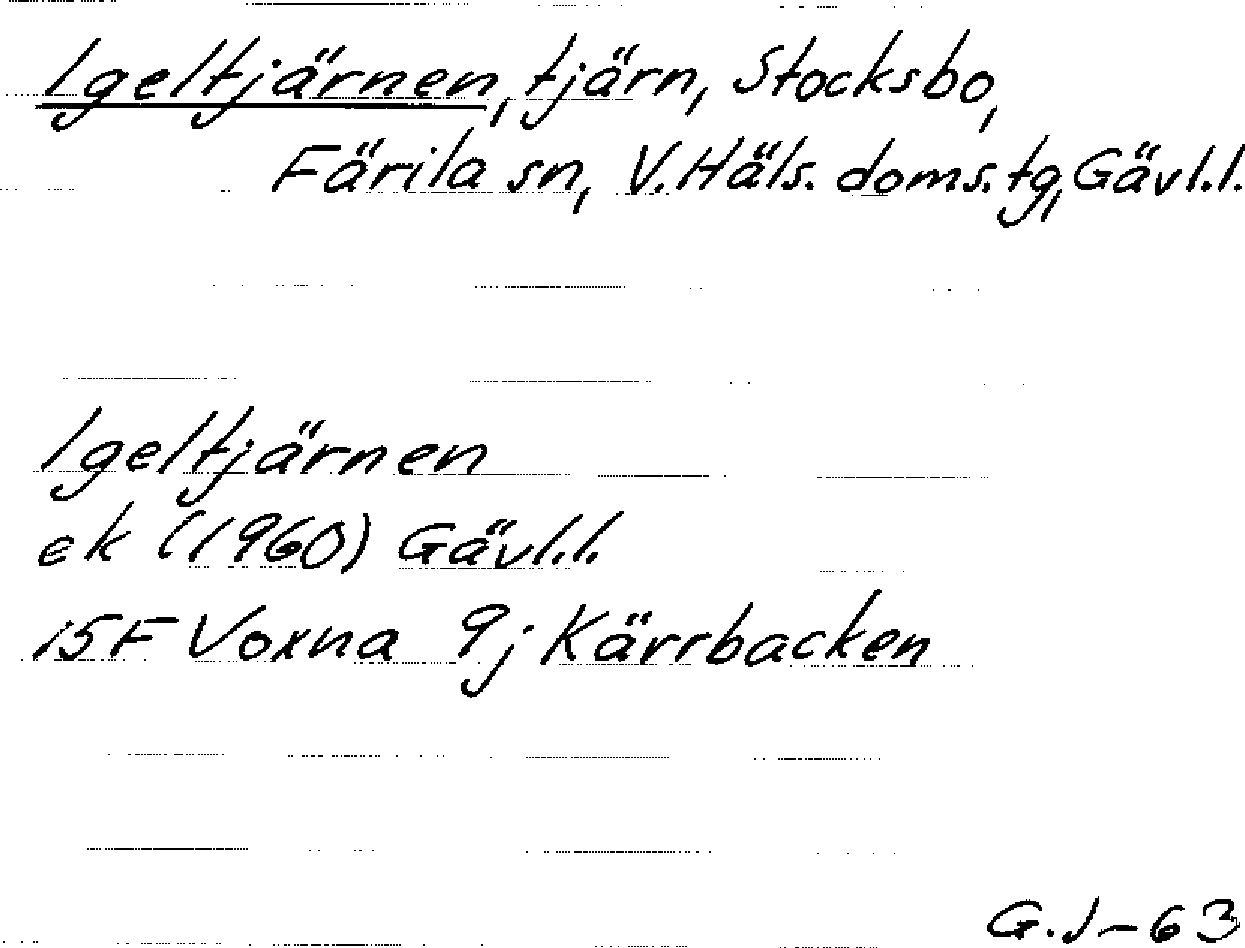 Igeltjärnen, tjärn, Stocksbo,
Färila sn, V. Häls. doms. tg, Gävl.l.
Igeltjärnen
ek (1960) Gävl.l.
15F Voxna 9j Kärrbacken
G.J-63